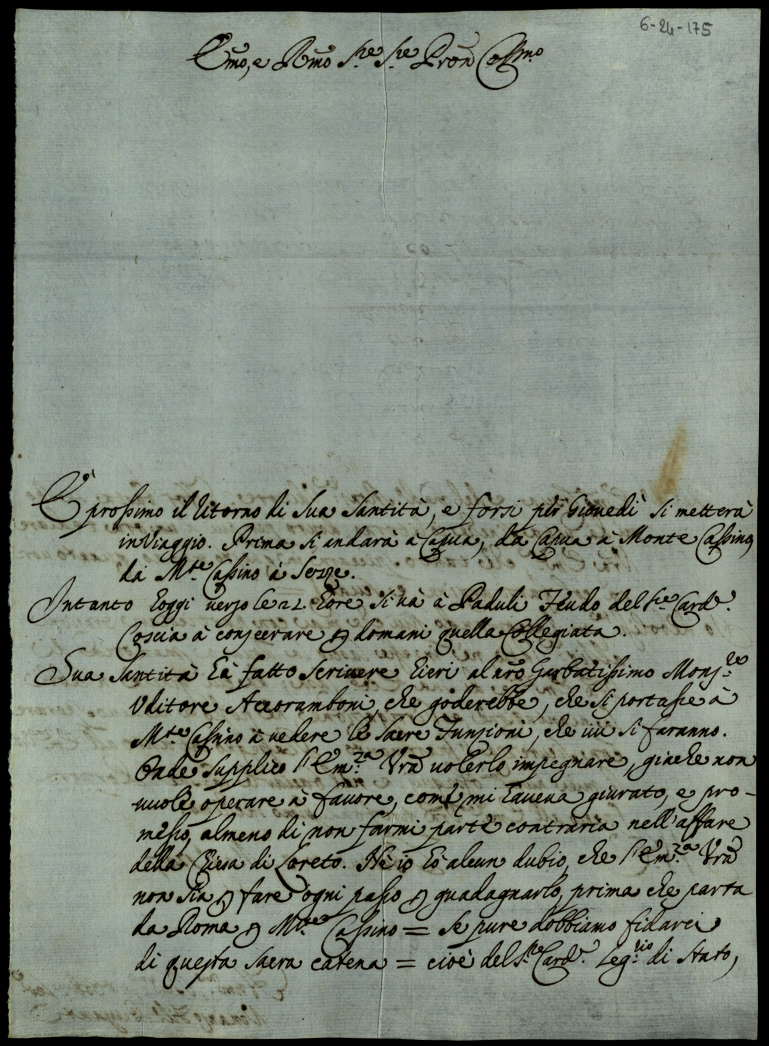 6-24-175
Emo, e Rmo Sre Sre Pron Colmo
È prossimo il ritorno di Sua Santità, e forsi per Giovedì si metterà
in viaggio. Prima si andarà à Capua, da Capua à Monte Cassino,
da Mte Cassino à Sezze.
Intanto hoggi verso le 21 hore si và à Paduli Feudo del Sre Card.
Coscia à consecrare domani quella Collegiata.
Sua Santità hà fatto scrivere hieri al nro Garbatissimo Monsre
Uditore Accoramboni, che goderebbe, che si portasse à
Mte Cassino à vedere le Sacre Funzioni, che ivi si faranno.
Onde supplico l'Emza Vra volerlo impegnare, giache non
vuole operare à favore, come mi haveva giurato, e pro-
messo, almeno di non farmi parte contraria nell'affare
della Chiesa di Loreto. Nè io hò alcun dubio, che l'Emza Vra
non sia fare ogni passo guadagnarlo, prima che parta
da Roma Mte Cassino = se pure dobbiamo fidarci
di questa sacra catena = cioè del Sre Card. Segrio di Stato,